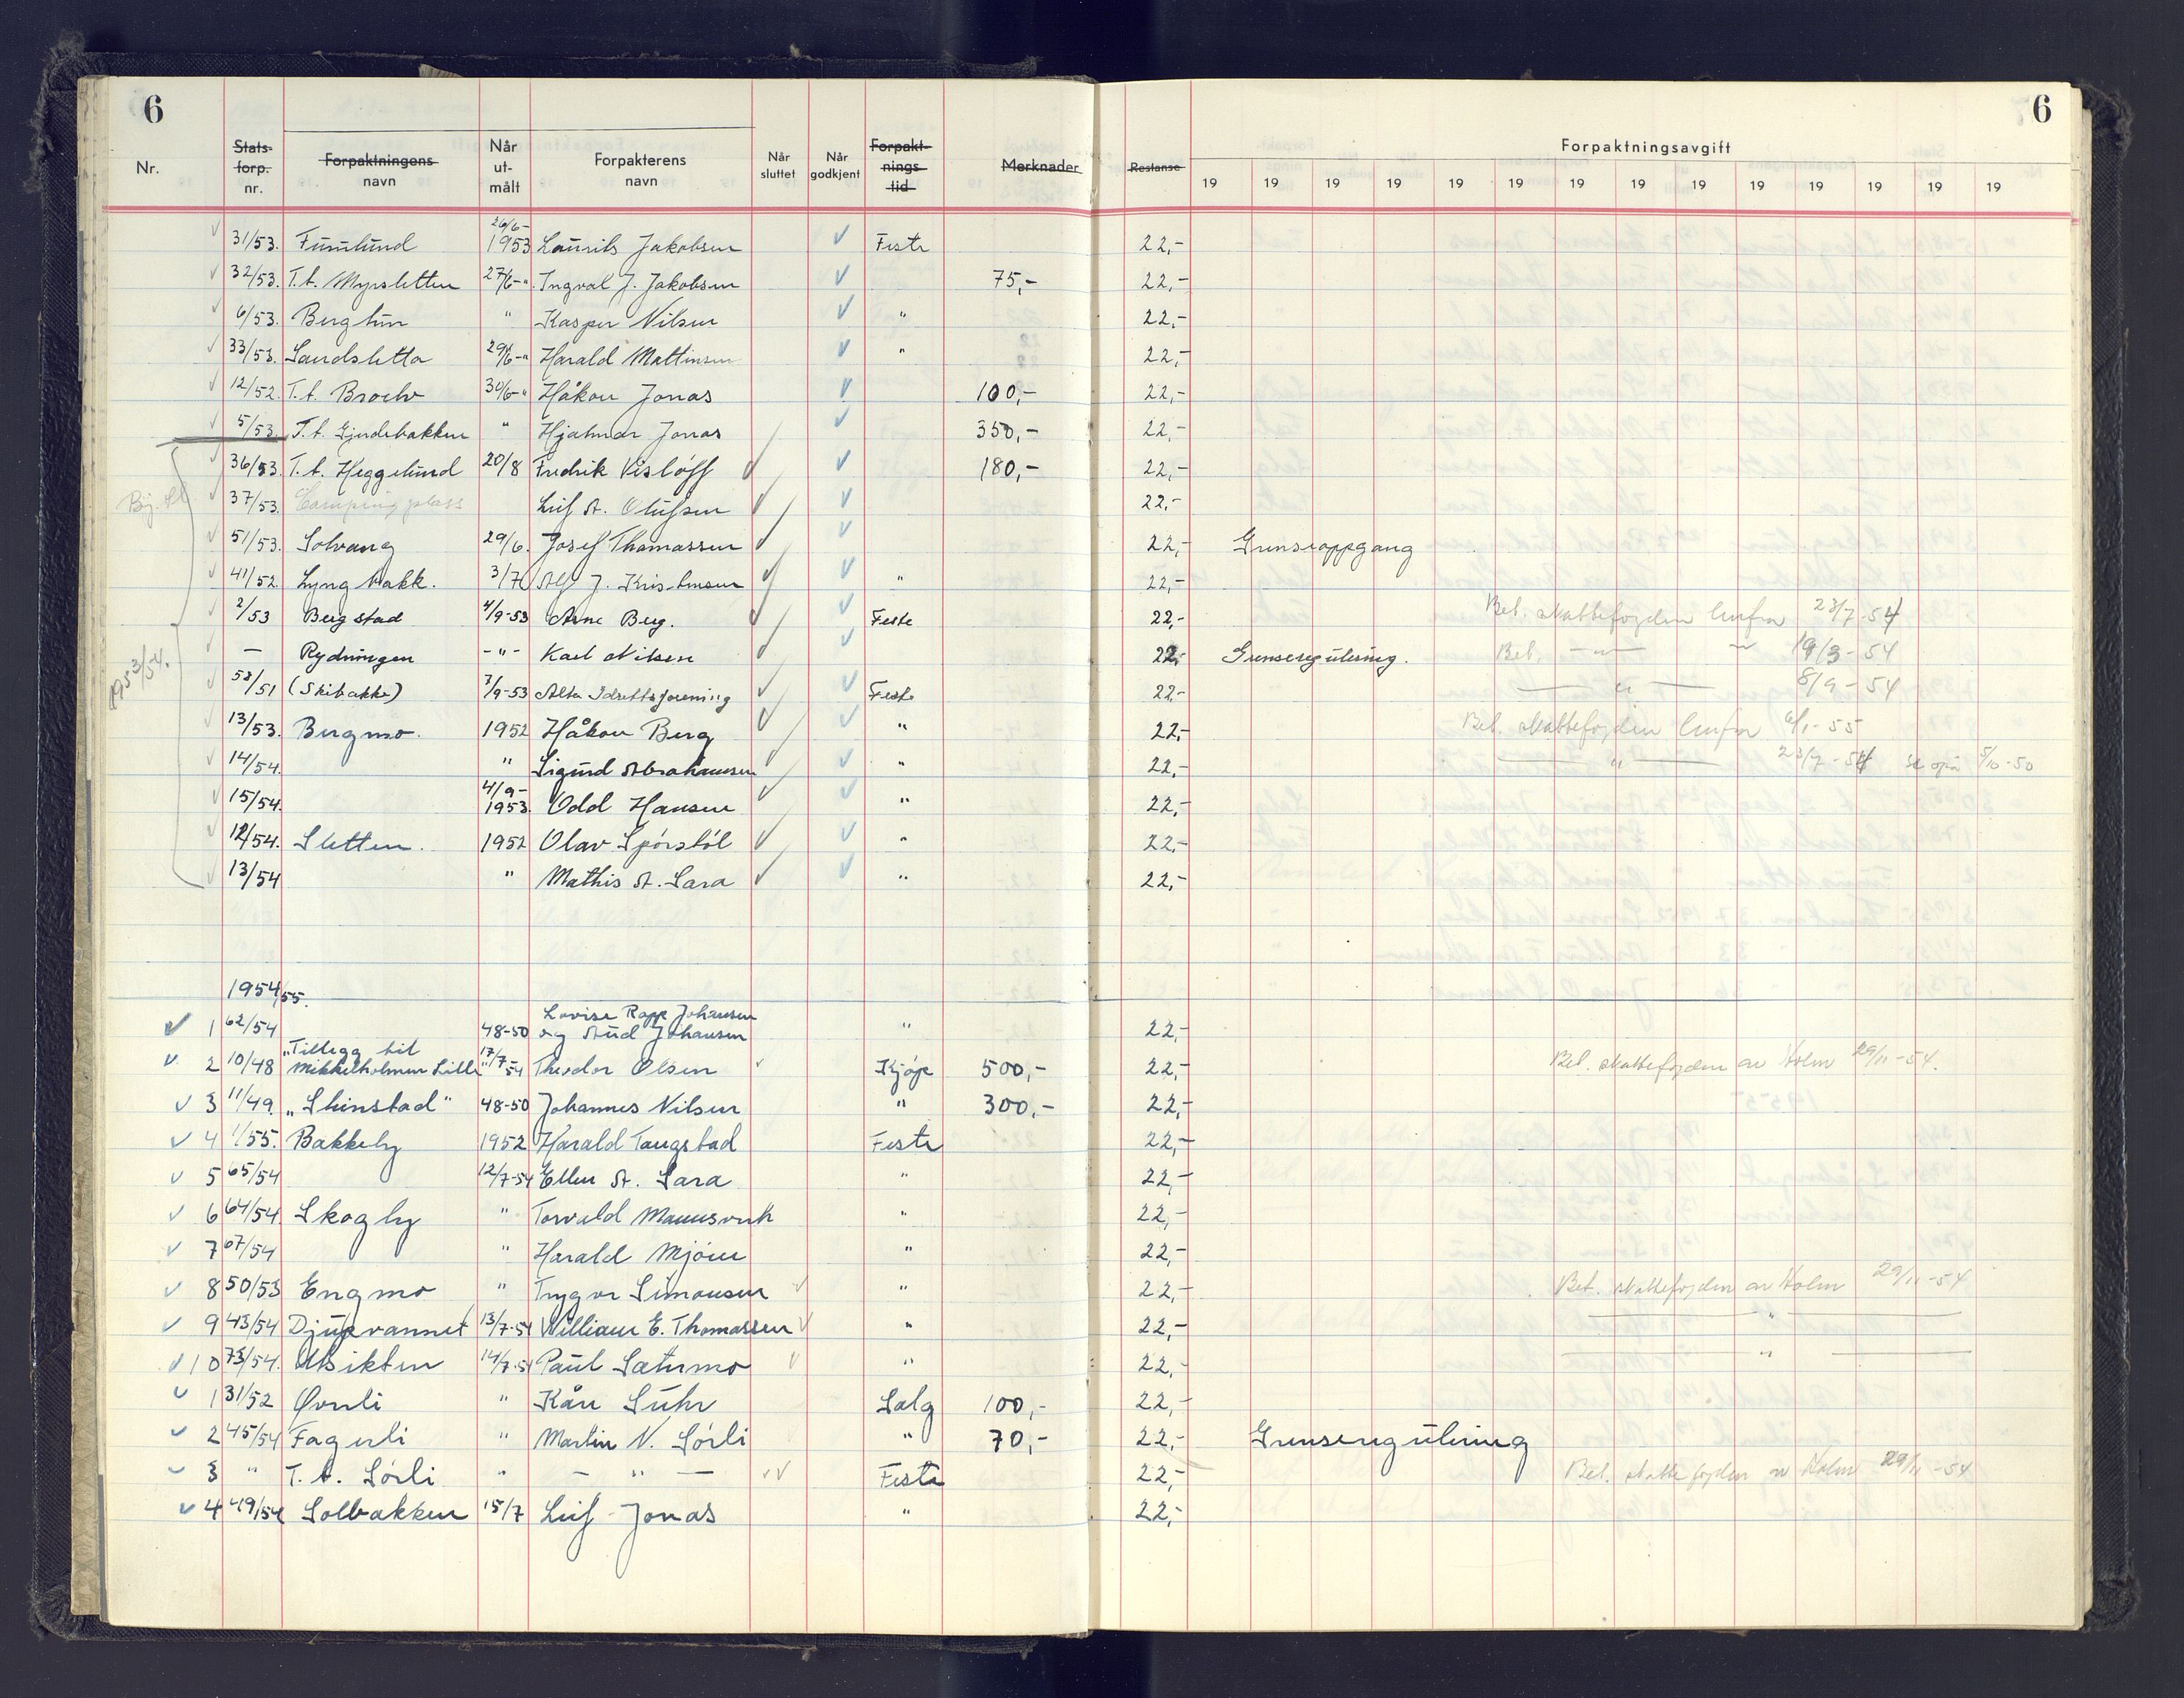 6
6
Nr.
Stats-forp. nr.
Forpaktningens navn
Når ut-målt
Forpakterens navn
Når sluttet
Når godkjent
Forpakt-nings-tid
Merknader
Restanse
Forpaktningsavgift
19 19 19 19 19 19 19 19 19 19 19 19 19 19
31/53. 26/6- 1953 Laurits Jakobsen Feste 22,-
32/53. T.t. Myrsletten 27/6-" Ingval J. Jakobsen 75,- 22,-
6/53. Bergtun " Kasper Nilsen " 22,-
33/53. Sandsletta 29/6-" Harald Mattinsen " 22,-
12/52. T.t. 30/6-" Håkon Jonas 100,- 22,-
5/53. T.t. Hjalmar Jonas 350,- 22,-
36/53. T.t. Heggelund 20/8 Fredrik Visløff 180,- 22,-
Bj. 37/53. Campingplass Leif A. Olufsen 22,-
51/53. Solvang 29/6. Josef Thomassen 22,- Grenseoppgang
41/52. Lyngbakk. 3/7 Alf J. Kristensen " 22,-
2/53 Bergstad 4/9-53 Arne Berg. Feste 22,- Bet. skattefogden 23/7-54
1953/54. — Rydningen -"- Karl Nilsen 22,- Grenseregulering. Bet. —"— 19/3-54
58/51 (Skibakke) 7/9-53 Alta Idrettsforening Feste 22,- —"— 8/9-54
13/53. Bergmo. 1952 Håkon Berg " 22,- Bet. skattefogden 6/1-55
14/54. " Sigurd Abrahamsen " 22,- —"— 23/7-54 5/10-50
15/54. 4/9-1953. Odd Hansen " 22,-
12/54. Sletten. 1952 Olav Spørstøl " 22,-
13/54 " Mathis A. Sara " 22,-
1954/55.
1 62/54 48-50 Lovise Rapp Johansen og Aud Johansen " 22,-
2 10/48 "Tillegg til Mikkelholmen Lille" 17/7-54 Theodor Olsen Kjøp 500,- 22,- Bet. skattefogden av Holm 29/11-54.
3 11/49. "Steinstad" 48-50 Johannes Nilsen " 300,- 22,-
4 1/55. Bakkely 1952 Harald Taugstad Feste 22,-
5 65/54 12/7-54 Ellen A. Sara " 22,-
6 64/54 Skogly " Torvald " 22,-
7 67/54 " Harald Mjøen " 22,-
8 50/53 Engmo " Trygve Simonsen " 22,- Bet. skattefogden av Holm 29/11-54
9 43/54 Djupvannet 13/7-54 William E. Thomassen " 22,- —"—
10 73/54. Utsikten 14/7-54 Paul Sætermo " 22,- —"—
1 31/52 Øvreli " Kåre Suhr Salg 100,- 22,-
2 45/54 Fagerli " Martin N. Sørli " 70,- 22,- Grenseregulering
3 " T.t. Sørli " — " — Feste 22,- Bet. skattefogden av Holm 29/11-54
4 49/54 Solbakken 15/7 Leif Jonas " 22,-